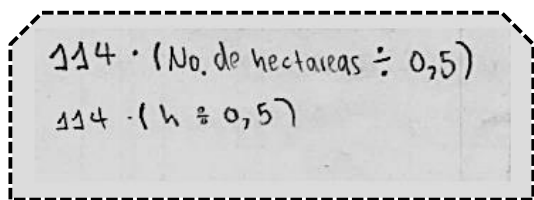 114 · (No. de hectareas ÷ 0,5)
114 · (h ÷ 0,5)